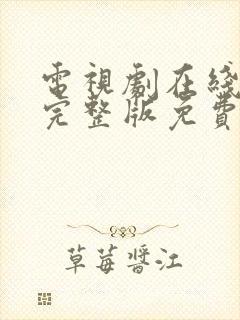 電視劇在綫
完整版免費
草莓醬江